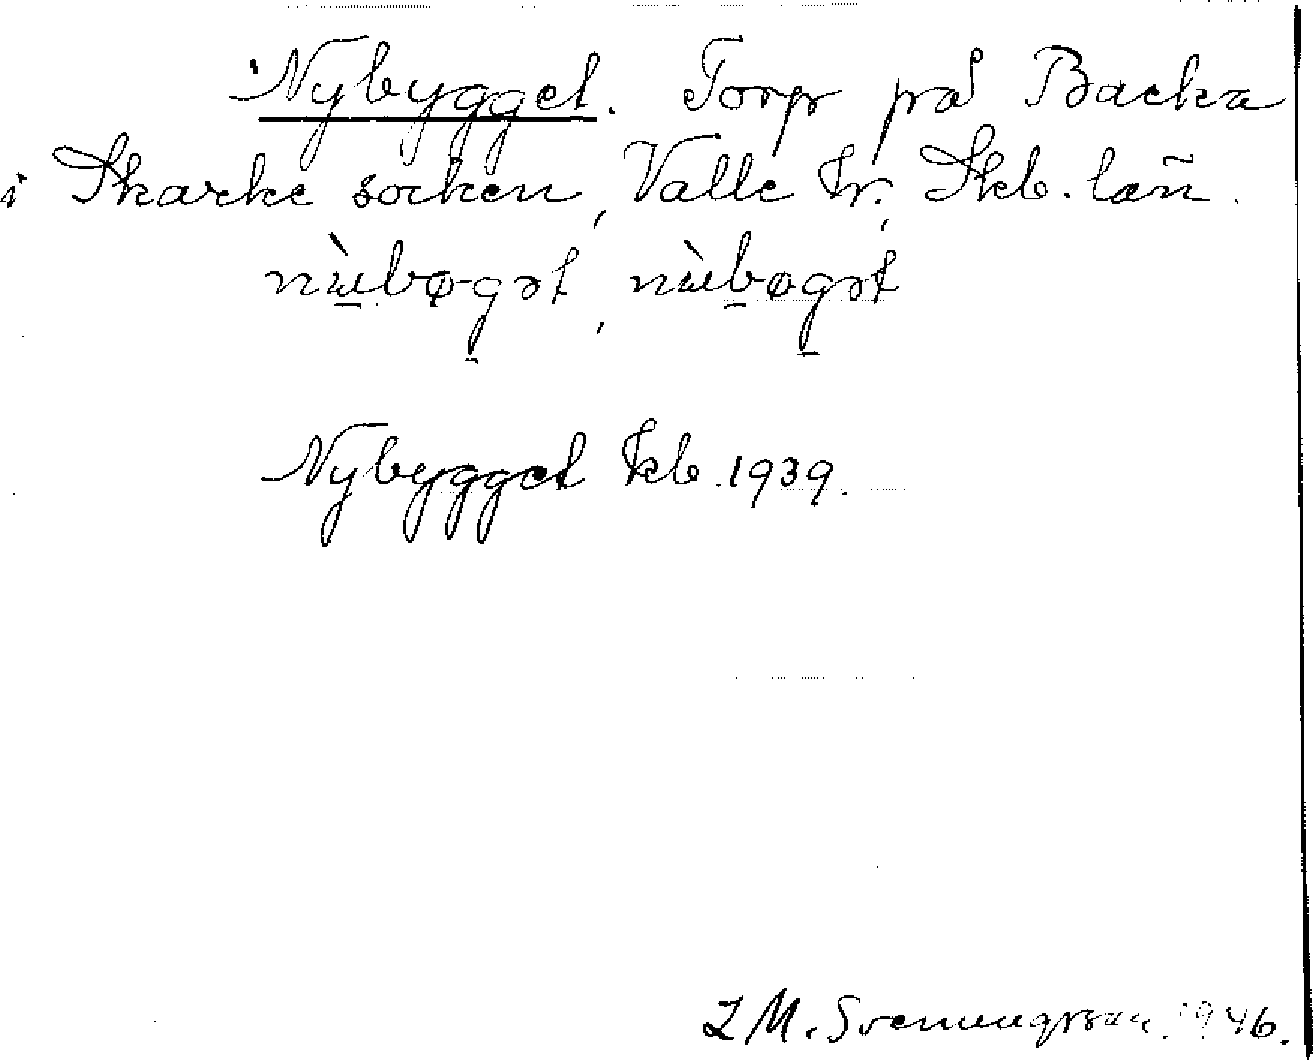 Nybygget. Torp på Backa
i Skarke socken, Valle hr, Skb. län.
Nybygget kb. 1939.
L M. Svenungsson. 1946.